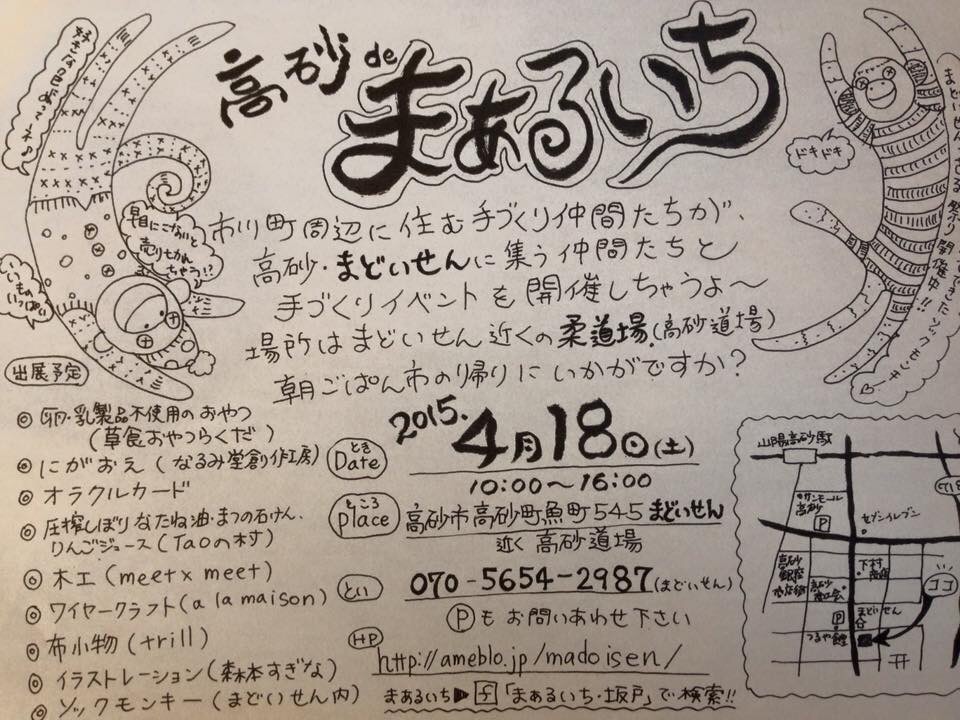 高砂 de
まあるいち
好きな色選んでね♡
早目にこないと
売り切れ
ちゃう!?
いいもの
いっぱい
ドキドキ
市川町周辺に住む手づくり仲間たちが、
高砂・まどいせんに集う仲間たちと
手づくりイベントを開催しちゃうよ〜
場所はまどいせん近くの柔道場(高砂道場)
朝ごぱん市の帰りにいかがですか?
出展予定
◎ 卵・乳製品不使用のおやつ
(草食おやつらくだ)
◎ にがおえ(なるみ堂創作工房)
◎ オラクルカード
◎ 圧搾しぼりなたね油・まつの石けん、
りんごジュース(Taoの村)
◎ 木工(meet x meet)
◎ ワイヤークラフト(a la maison)
◎ 布小物(trill)
◎ イラストレーション(森本すぎな)
◎ ソックモンキー(まどいせん内)
とき
Date
2015.4月18日(土)
10:00〜16:00
ところ
place
高砂市高砂町魚町545 まどいせん
近く 高砂道場
とい
070-5654-2987(まどいせん)
Ⓟもお問いあわせ下さい
HP
http://ameblo.jp/madoisen/
まあるいち▶f「まあるいち・坂戸」で検索!!
山陽高砂駅
サンモール
高砂
P
セブンイレブン
高砂
銀座
商店街
高砂
商工会
下村
商店
ココ
P
まどいせん
つるや餅